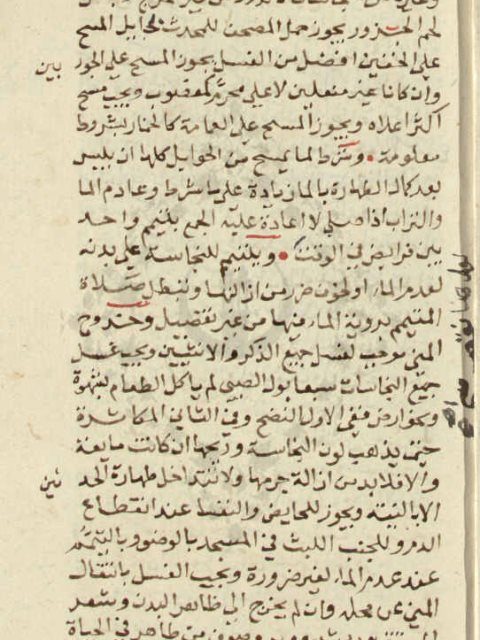 لحم الجزور يجوز حمل المصحف للمحدث بحايل المسح
على الخفين افضل من الغسل يجوز المسح على الجور
بين
وان كانا غير منعلين لا على محرم كمغصوب ويجب مسح
اكثر اعلاه ويجوز المسح على العمامة كالخمار بشروط
معلومة وشرط لما يمسح من الحوايل كلها ان يلبس
بعد كمال الطهارة بالما زيادة على ما شرط وعادم الما
والتراب اذا صلى لا اعادة عليه الجمع بتيمم واحد
بين فرايض في الوقت ويتيمم للنجاسة على بدنه
لعدم الماء او لخوف ضرر من ازالتها وتبطل صلاة
المتيمم بروية الماء فيها من غير تفصيل وخروج
المني موجب لغسل جميع الذكر والانثيين ويجب غسل
جميع النجاسات سبعا بول الصبي لم ياكل الطعام بشهوة
في الاول النضح وفي الثاني المكاثرة
حتى يذهب لون النجاسة وريحها ان كانت مايعة
والا فلا بد من ازالة جرمها ولا تتداخل طهارة الحد
ثين
الا بالنية ويجوز للحايض والنفسا عند انقطاع
الدم وللجنب اللبث في المسجد بالوضوء وبالتيمم
عند عدم الماء لغير ضرورة ويجب الغسل بانتقال
المني عن محله وان لم يخرج الى ظاهر البدن وشعر